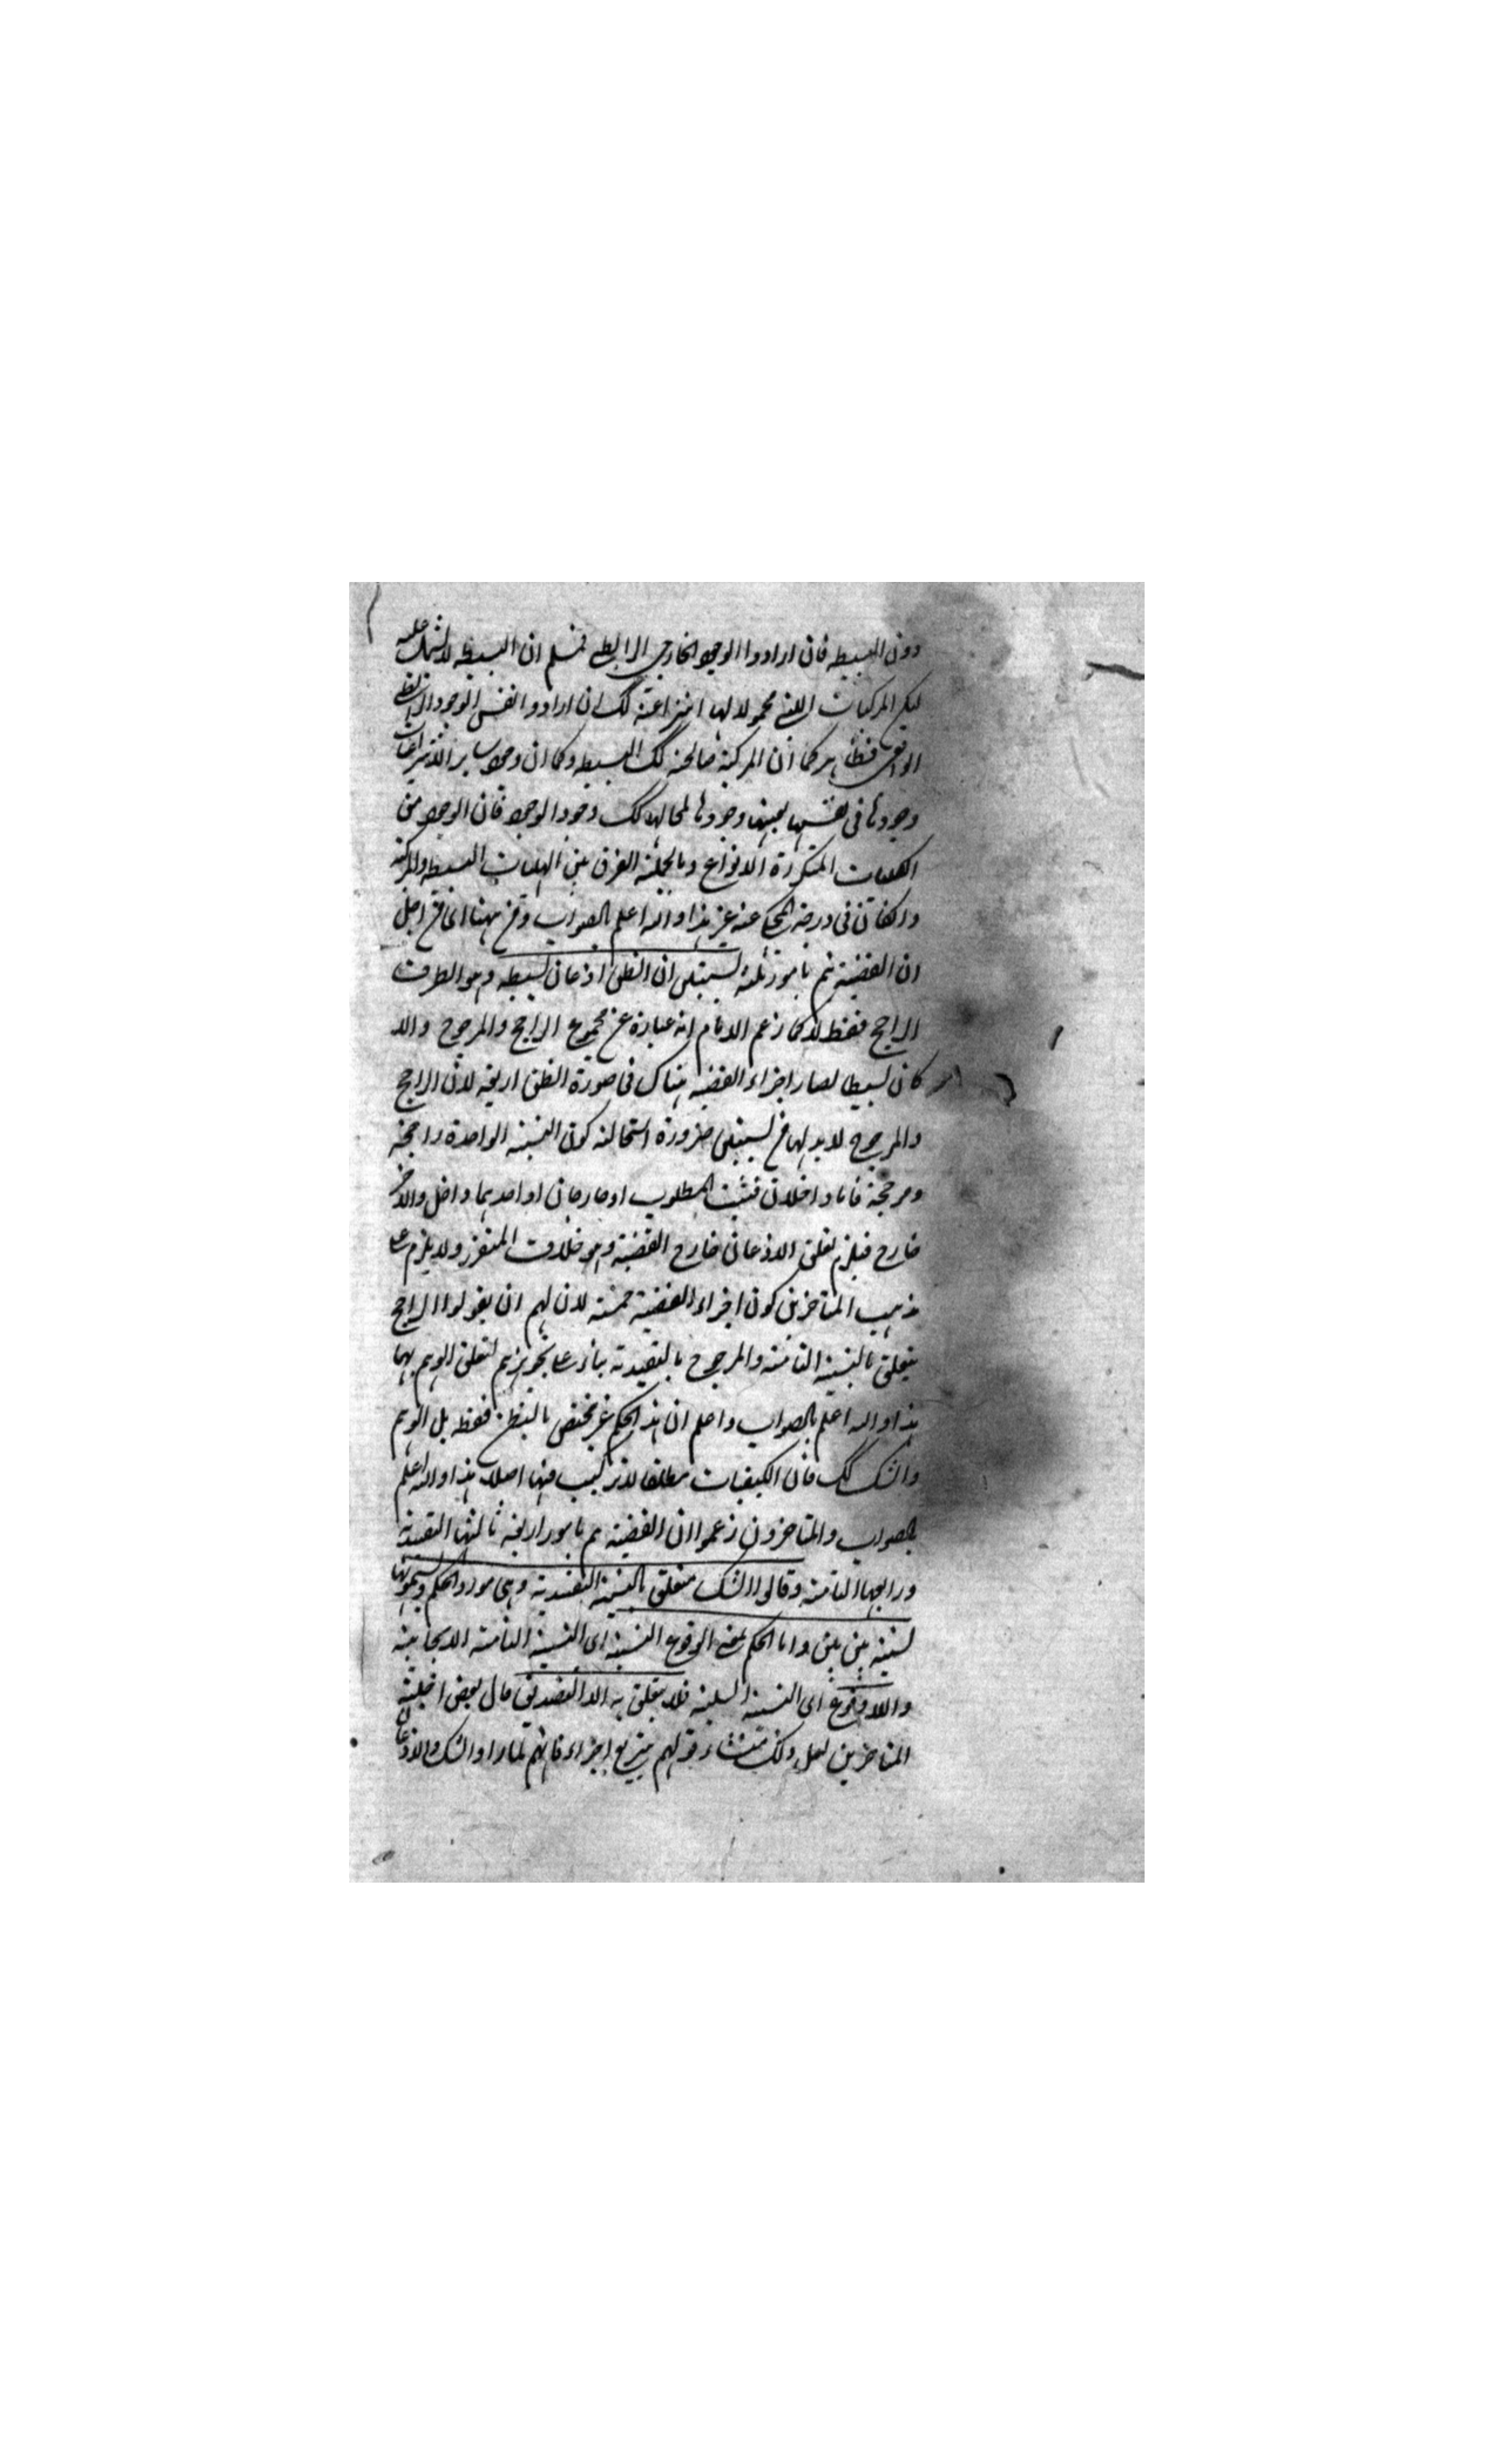 دون البسيطة فان ارادوا الوجود الخارجى الرابطى فمسلم ان البسيطة لا تشتمل عليه
ليكن المركبات التى محمولاتها انتزاعية كك ان ارادوا نفس الوجود الرابطى
الواقعى فظاهر كما ان المركبة صالحة كك البسيطة وكما ان وجود ساير الانتزاعيات
وجودها فى نفسها بعينها وجودها لمحالها كك وجود الوجود فان الوجود من
الكليات المتكررة الانواع وبالجملة الفرق بين الهليات البسيطة والمركبة
فى درجة المحكى عنه هذا والله اعلم بالصواب ومن ههنا
ان القضية تتم بامور ثلثة يستبين ان الظن اذعان بسيط وهو الطرف
الراجح فقط لا كما زعم الامام انه عبارة عن مجموع الراجح والمرجوح والا
كان بسيطا لصار اجزاء القضية هناك فى صورة الظن اربعة لان الراجح
والمرجوح لابد لهما من نسبتين ضرورة استحالة كون النسبة الواحدة راجحة
ومرجحة فاما داخلان فثبت المطلوب او خارجان او احدهما داخل والاخر
خارج فيلزم تعلق الاذعان خارج القضية وهو خلاف المتقرر ولا يلزم على
مذهب المتاخرين كون اجزاء القضية خمسة لان لهم ان يقولوا الراجح
يتعلق بالنسبة التامة والمرجوح بالتقييدية بناء على تجويزهم لتعلق الوهم بها
هذا والله اعلم بالصواب واعلم ان هذا الحكم غير مختص بالظن فقط بل الوهم
والشك كك فان الكيفيات مطلقا لا تركيب فيها اصلا هذا والله اعلم
بالصواب والمتاخرون زعموا ان القضية تتم بامور اربعة ثالثها التقييدية
ورابعها التامة وقالوا الشك متعلق بالنسبة التقييدية وهى مورد الحكم ويسمونها
نسبة بين بين واما الحكم بمعنى الوقوع النسبة اى النسبة التامة الايجابية
واللاوقوع اى النسبة السلبية فلا يتعلق به الا التصديق قال بعض اجلة
المتاخرين لعل ذلك منشاء قولهم بتربيع اجزاء فانهم لما راوا الشك والاذعان